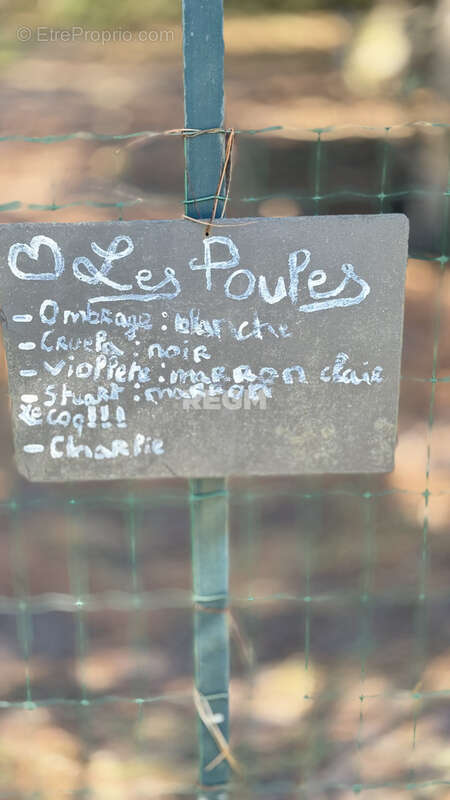 © EtreProprio.com
Les Poules
- Ombrage : blanche
- Cruella : noir
- violette : marron clair
- Stuart : marron
Le coq!!!
- Charlie
REGM